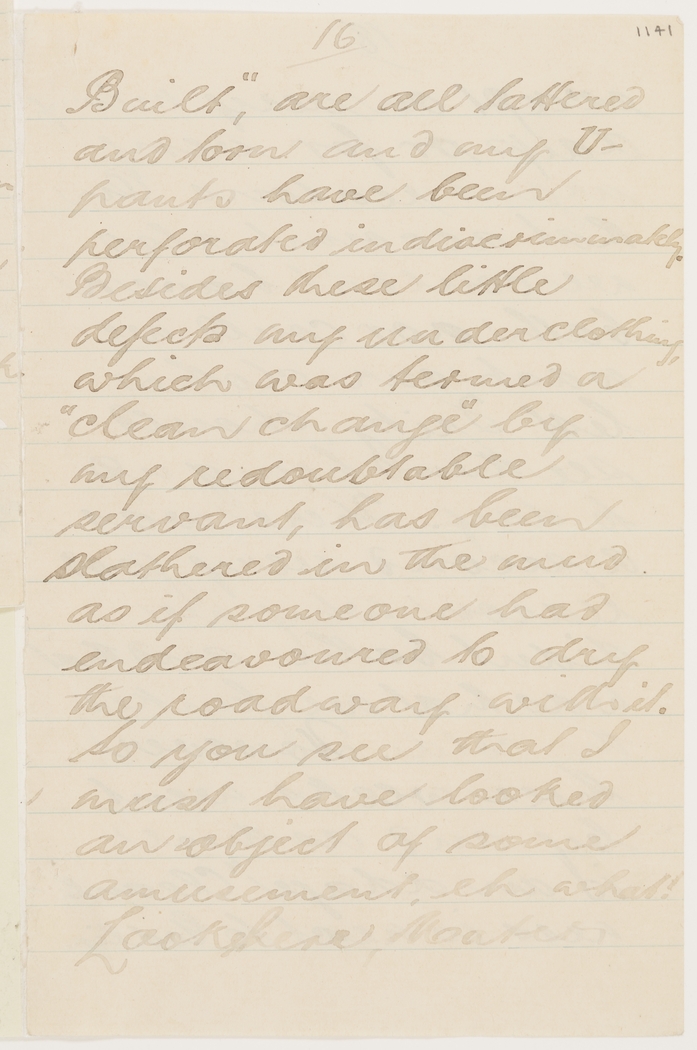 16
1141
Built", are all tattered
and torn and my U-
pants have been
perforated indiscriminately.
Besides these little
defects my underclothing,
which was termed a
"clean change" by
my redoubtable
servant, has been
slathered in the mud
as if someone had
endeavoured to dry
the roadway with it.
So you see that I
must have looked
an object of some
amusement, eh what!
Look here,